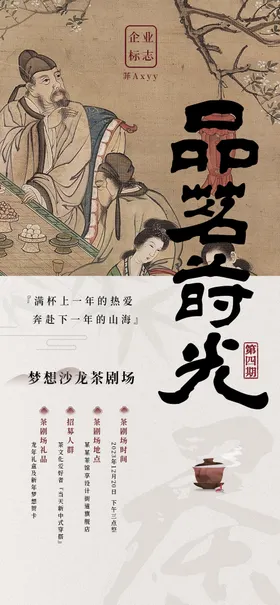 企业
标志
菲Axyy
品茗时光
第四期
『满杯上一年的热爱
奔赴下一年的山海』
梦想沙龙茶剧场
茶剧场时间
2023年12月20日 下午三点整
茶剧场地点
某某茶馆享设计街道旗舰店
招募人群
茶文化爱好者『当天新中式穿搭』
茶剧场礼品
龙年礼盒及新年梦想贺卡
茶